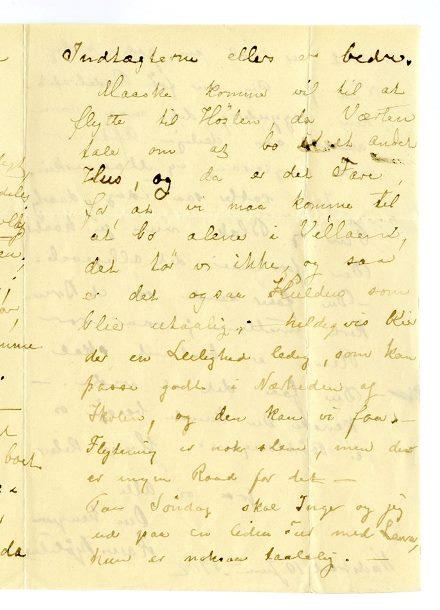 Indtægterne ellers er bedre.
Maaske komme vil til at
flytte til Hösten, da Værten
tale om at bo i et andet
Hus, og da er det Fare,
for, at vi maa komme til
at bo alene i Villaen,
det tør vi ikke, og saa
er det ogsaa Huldus som
blir utaalig, heldigvis blir
der en Leilighed ledig, som kan
passe godt i Nærheden af
Skolen, og den kan vi faa. –
Flytning er nok slem, men der
er ingen Raad for det –
Paa Søndag skal Inger og jeg
ud paa en liden Tur med Laura,
hun er noksaa taalelig. –